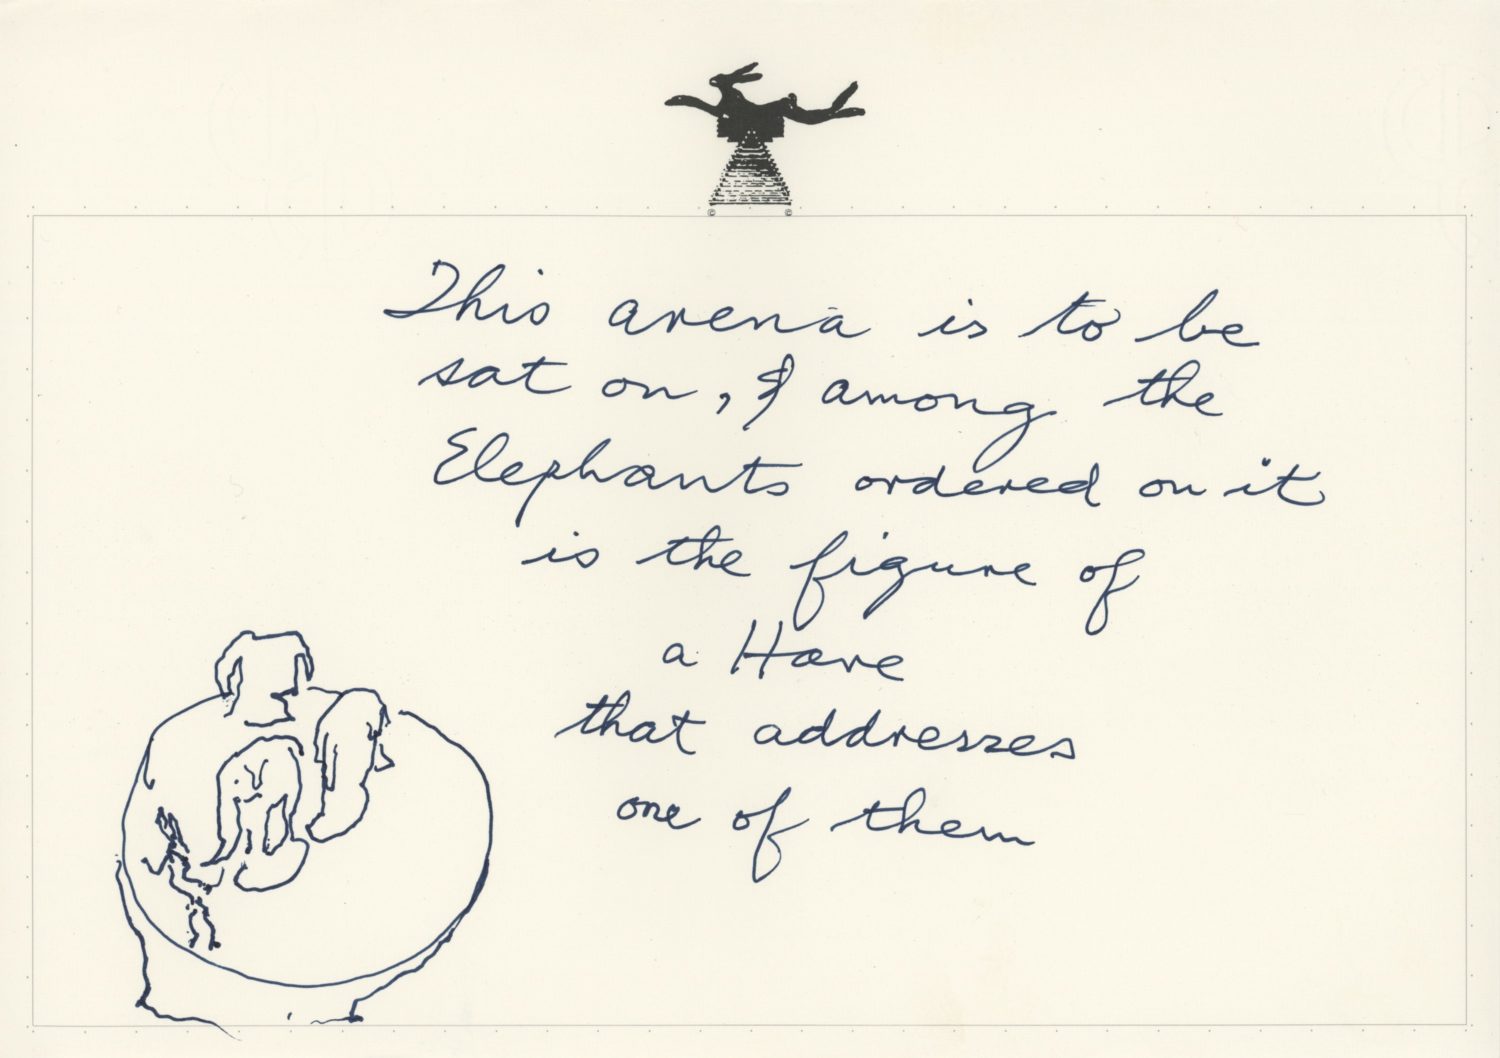 This arena is to be
sat on, & among the
Elephants ordered on it
is the figure of
a Hare
that addresses
one of them